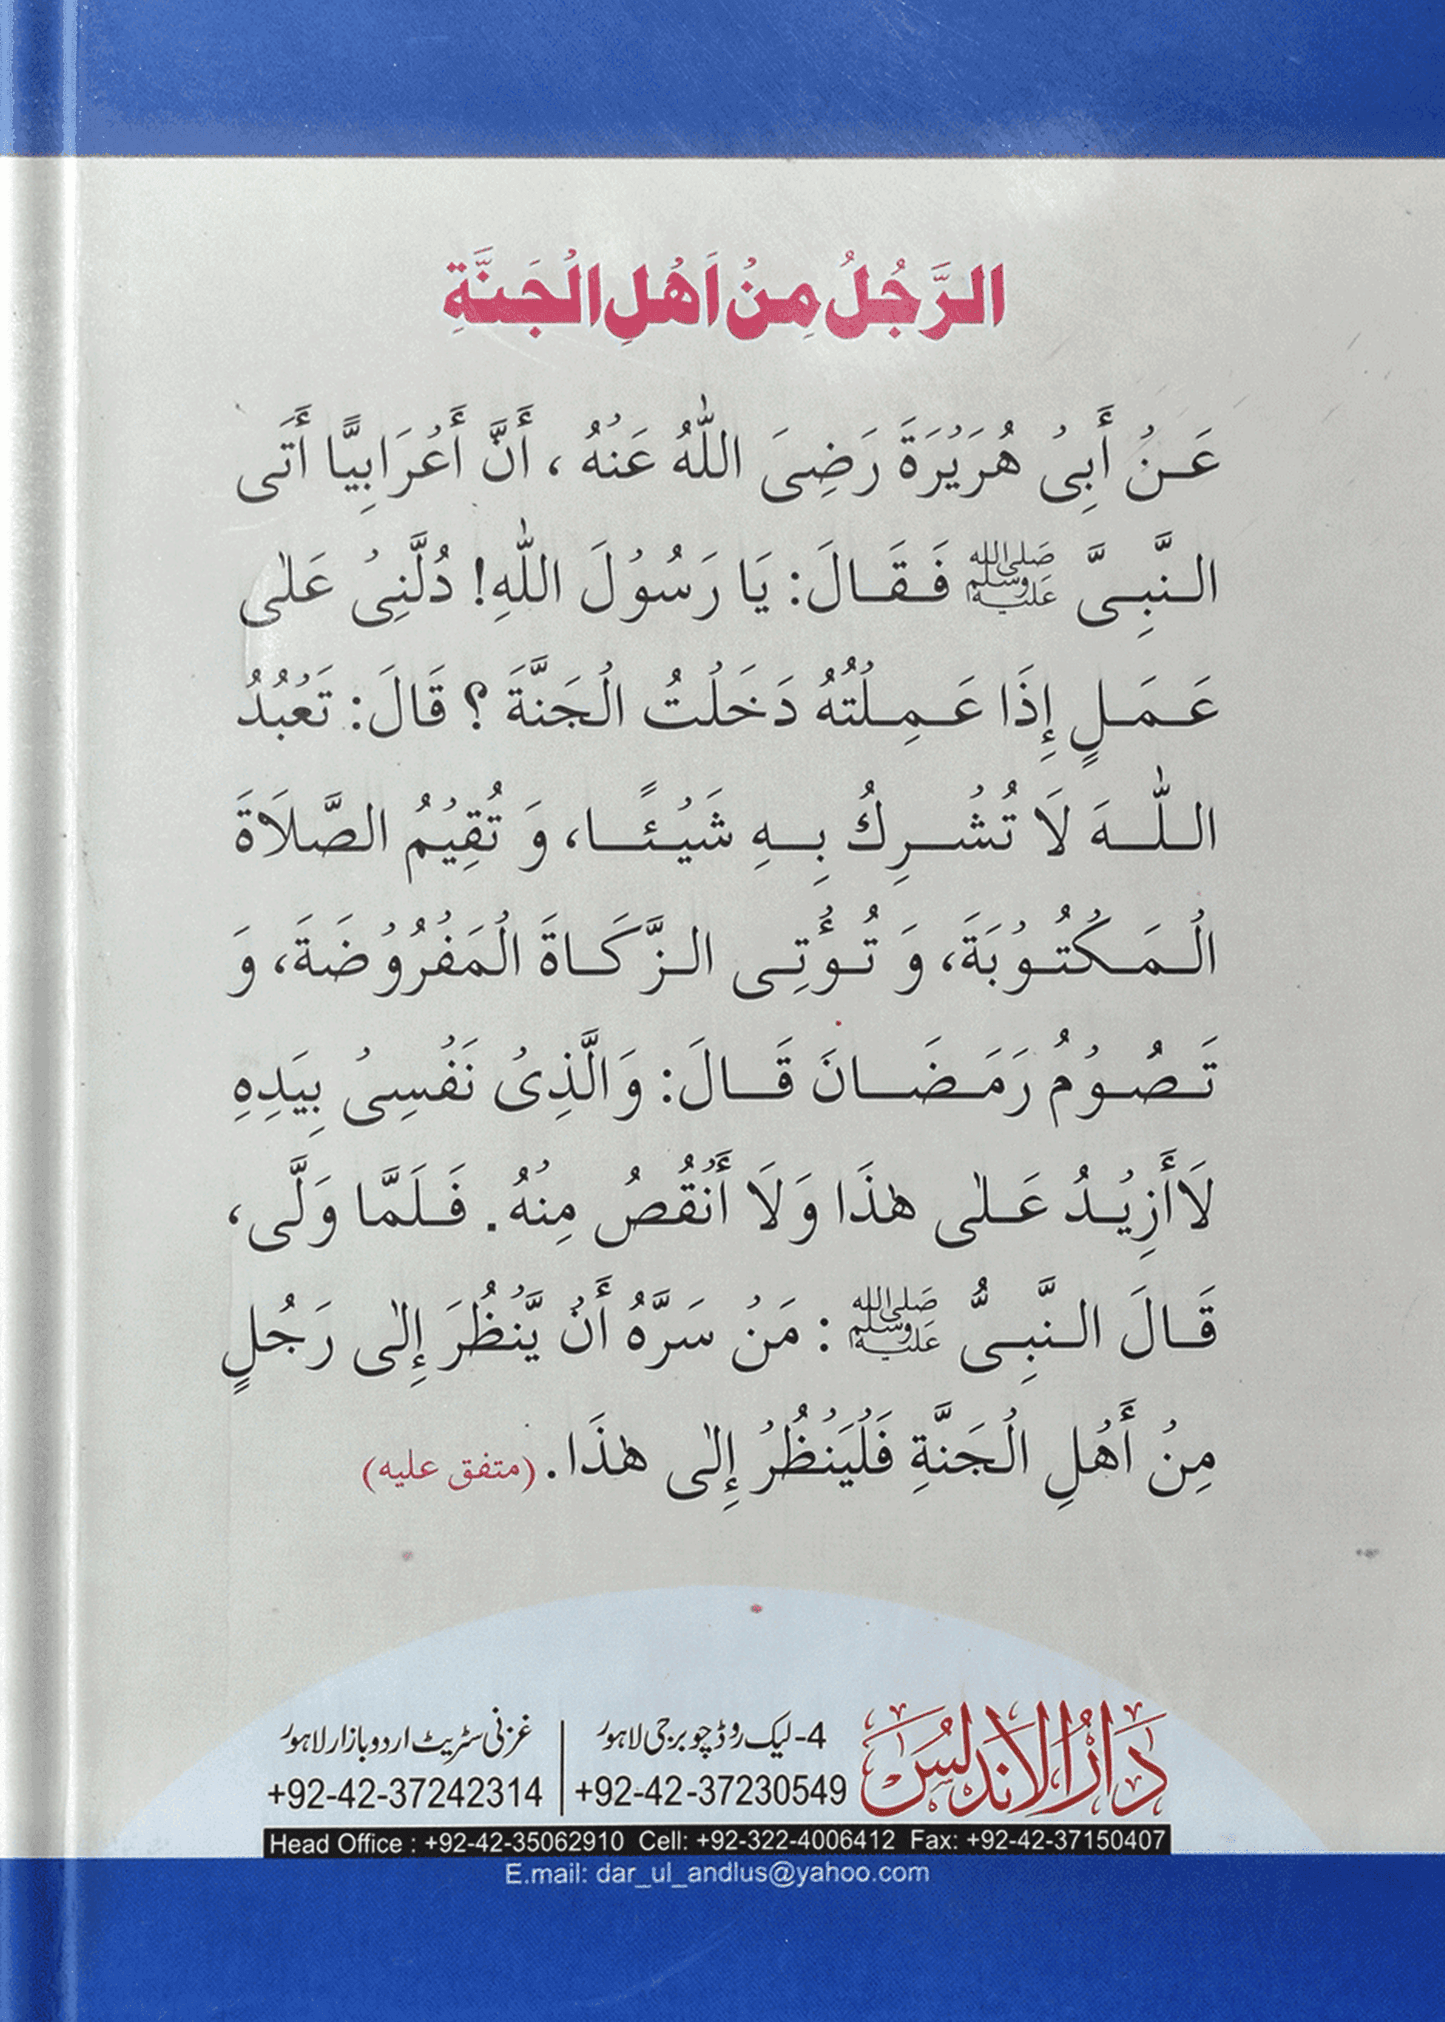 الرَّجُلُ مِنْ اَهْلِ الْجَنَّةِ
عَنْ أَبِىْ هُرَيْرَةَ رَضِىَ اللّٰهُ عَنْهُ ، أَنَّ أَعْرَابِيًّا أَتَى
النَّبِىَّ ﷺ فَقَالَ: يَا رَسُوْلَ اللّٰهِ! دُلَّنِىْ عَلٰى
عَمَلٍ إِذَا عَمِلْتُهُ دَخَلْتُ الْجَنَّةَ ؟ قَالَ: تَعْبُدُ
اللّٰهَ لَا تُشْرِكُ بِهِ شَيْئًا، وَ تُقِيْمُ الصَّلَاةَ
الْمَكْتُوْبَةَ، وَ تُؤْتِى الزَّكَاةَ الْمَفْرُوْضَةَ، وَ
تَصُوْمُ رَمَضَانَ قَالَ: وَالَّذِىْ نَفْسِىْ بِيَدِهِ
لَاأَزِيْدُ عَلٰى هٰذَا وَلَا أَنْقُصُ مِنْهُ. فَلَمَّا وَلَّى،
قَالَ النَّبِىُّ ﷺ : مَنْ سَرَّهُ أَنْ يَّنْظُرَ إِلٰى رَجُلٍ
مِنْ أَهْلِ الْجَنَّةِ فَلْيَنْظُرْ إِلٰى هٰذَا. (متفق عليه)
دَارُالاندلس
4-لیک روڈ چوبرجی لاہور | غزنی سٹریٹ اردو بازار لاہور
+92-42-37230549 | +92-42-37242314
Head Office : +92-42-35062910 Cell: +92-322-4006412 Fax: +92-42-37150407
E.mail: dar_ul_andlus@yahoo.com